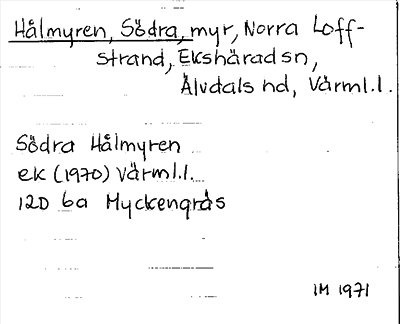 Hålmyren, Södra, myr, Norra Loff-
strand, Ekshärad sn,
Älvdals hd, Värml.l.
Södra Hålmyren
ek (1970) Värml.l.
12D 6a Myckengrås
IM 1971